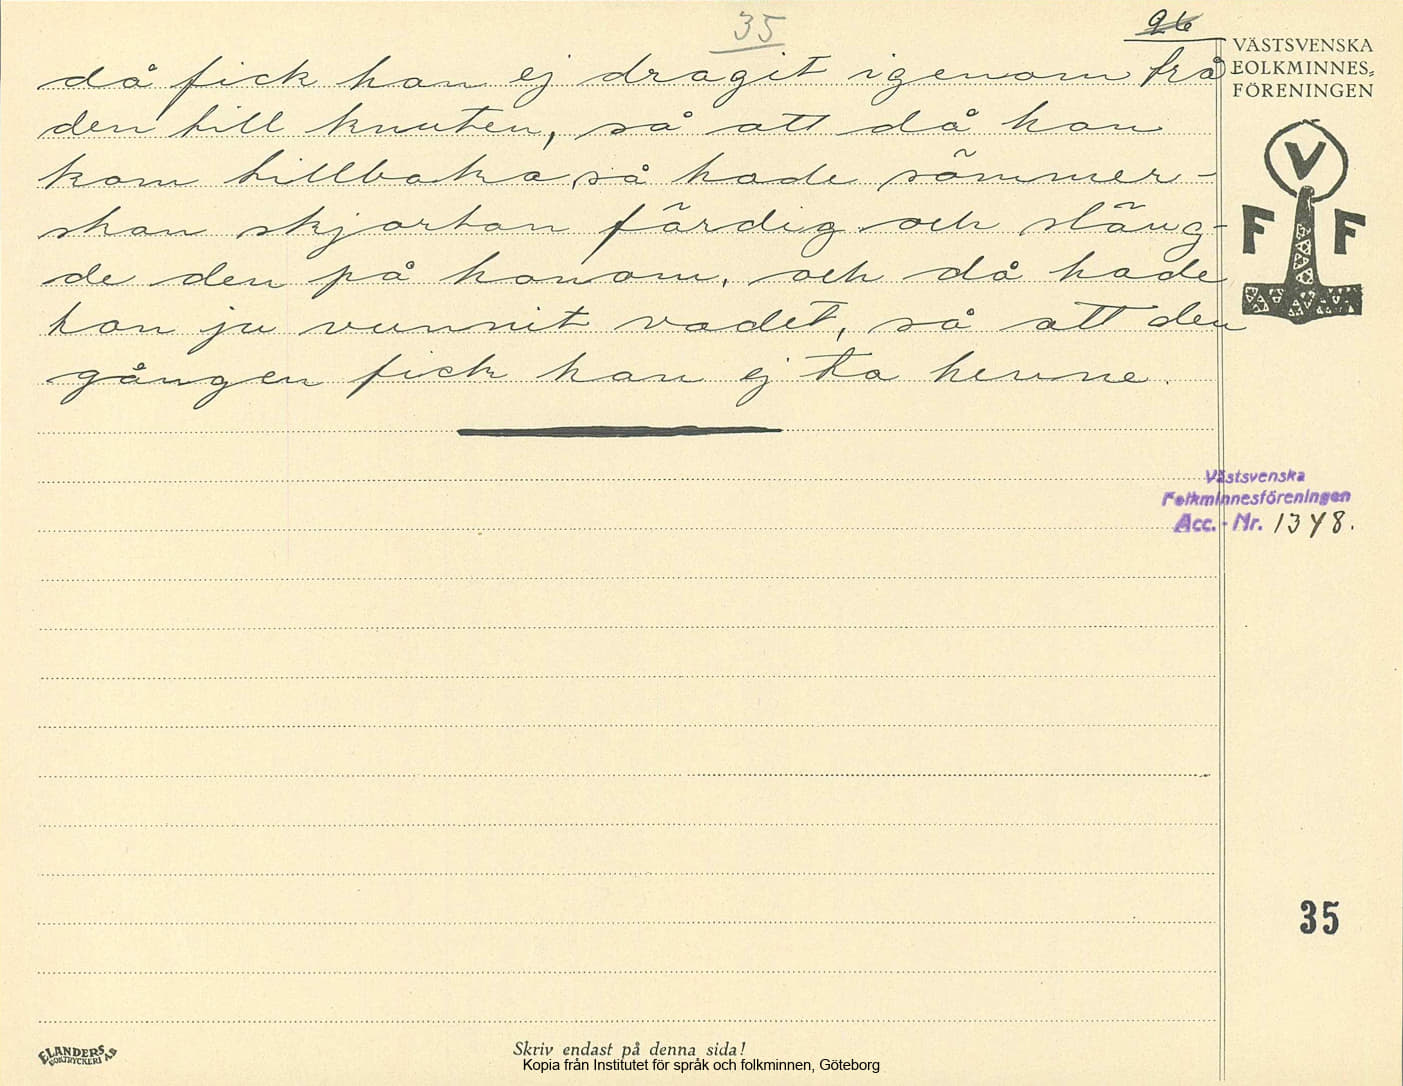 35
26
då fick han ej dragit igenom trå-
den till knuten, så att då han
kom tillbaka, så hade sömmer-
skan skjortan färdig och släng-
de den på honom, och då hade
hon ju vunnit vadet, så att den
gången fick han ej ta henne.
VÄSTSVENSKA
FOLKMINNES-
FÖRENINGEN
V
F F
Västsvenska
Folkminnesföreningen
Acc. - Nr. 1348.
35
ELANDERS
BOKTRYCKERI AB
Skriv endast på denna sida!
Kopia från Institutet för språk och folkminnen, Göteborg